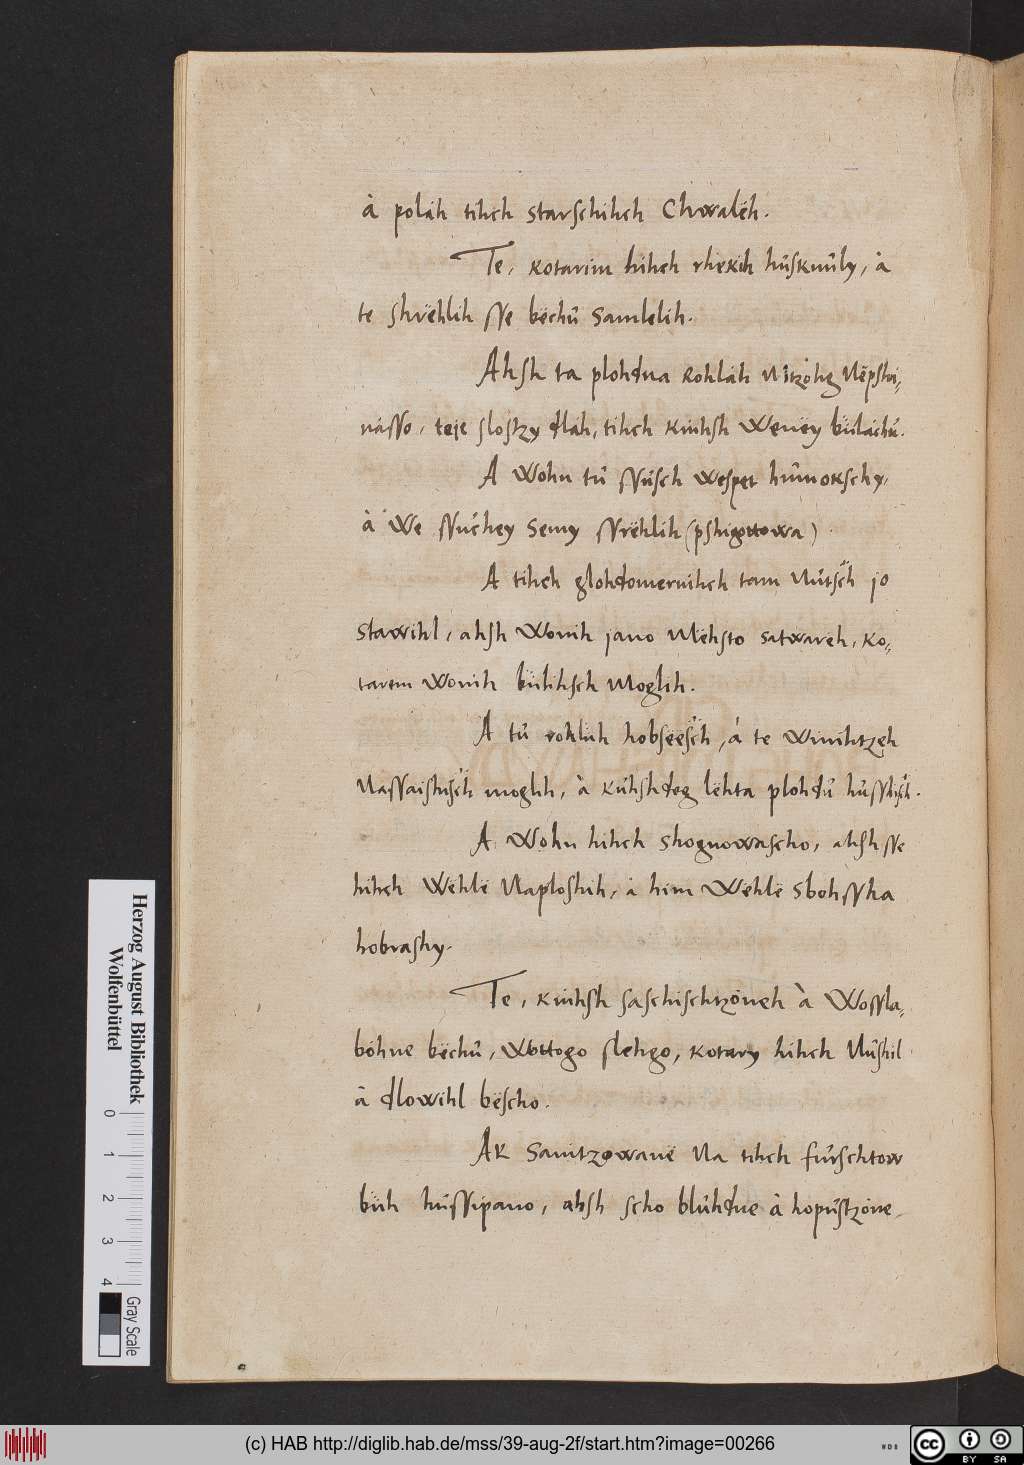 à poläh tihch starschihch Chwalëh.
Te, kotarim hihch rhekih hüskmüly, à
te shrëhlih sse bëchü samlelih.
Ahsh ta plohdna Rohläh nitzohg Nëpshi-
násso, teje slostzy dläh, tihch kinhsh Wenëy bülächü.
A Wohn tü ssüsch Wesper hümokschy,
à We ssüchey Semy ssrëhlih (pshigottowa)
A tihch glohdomernihch tam Nütsch jo
stawihl, ahsh Wonih jano Mëhsto satwarëh, ko-
tarem Wonih bülihsch Moglih.
A tü rohlüh hobseesch, à te Winihtzeh
Nassaishisch moglih, à kühshdeg lëhta plohdü hüsshisch.
A Wohn hihch shognowascho, ahsh sse
hihch Wëhlë Naploshih, à him Wëhlë sbohsska
hobrashy.
Te, kinhsh saschischtzöneh à Wossla-
böhne bëchü, Wottogo slehgo, kotary hihch Nüshil
à dlowihl bëscho.
Ak sanitzowanë Na tihch fürschtow
büh hüssipano, ahsh scho blühdne à hopüstzöne
Herzog August Bibliothek
Wolfenbüttel
0 1 2 3 4
Gray Scale
(c) HAB http://diglib.hab.de/mss/39-aug-2f/start.htm?image=00266
WDB
cc BY SA